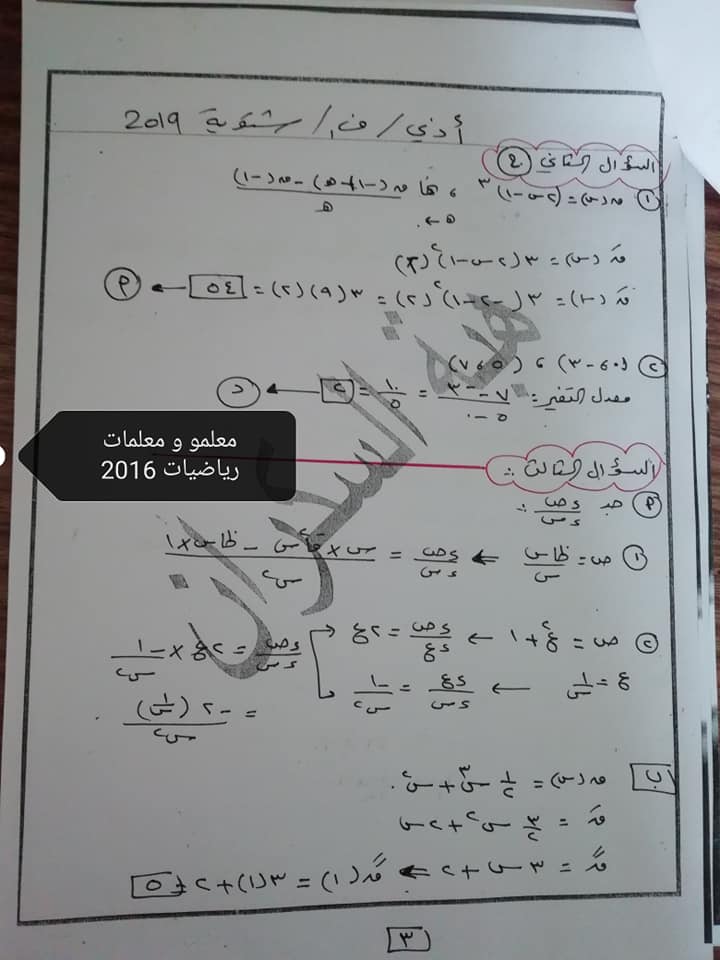 أدبي / ف١ / شتوية 2019
السؤال الثاني ع
١ ق(س) = (٢س - ١)^٣ ، نها ق(-١+هـ) - ق(-١) / هـ
هـ←٠
قَ(س) = ٣(٢س - ١)^٢ (٢)
قَ(-١) = ٣(-٢ - ١)^٢ (٢) = ٣(٩)(٢) = ٥٤ ← P
٢ (٠، -٣) ، (٥، ٧)
معدل التغير = ٧ - -٣ / ٥ - ٠ = ١٠/٥ = ٢ ← د
معلمو و معلمات
رياضيات 2016
السؤال الثالث :
P جد دص/دس :
١ ص = ظاس/س ← دص/دس = س × قا^٢س - ظاس × ١ / س^٢
٢ ص = ع^٢ + ١ ← دص/دع = ٢ع
ع = ١/س ← دع/دس = -١/س^٢
دص/دس = ٢ع × -١/س^٢
= -٢(١/س) / س^٢
ب ق(س) = ١/٢ س^٣ + س^٢
قَ = ٣/٢ س^٢ + ٢س
قً = ٣س + ٢ ← قً(١) = ٣(١) + ٢ = ٥
هبة السكران
٣